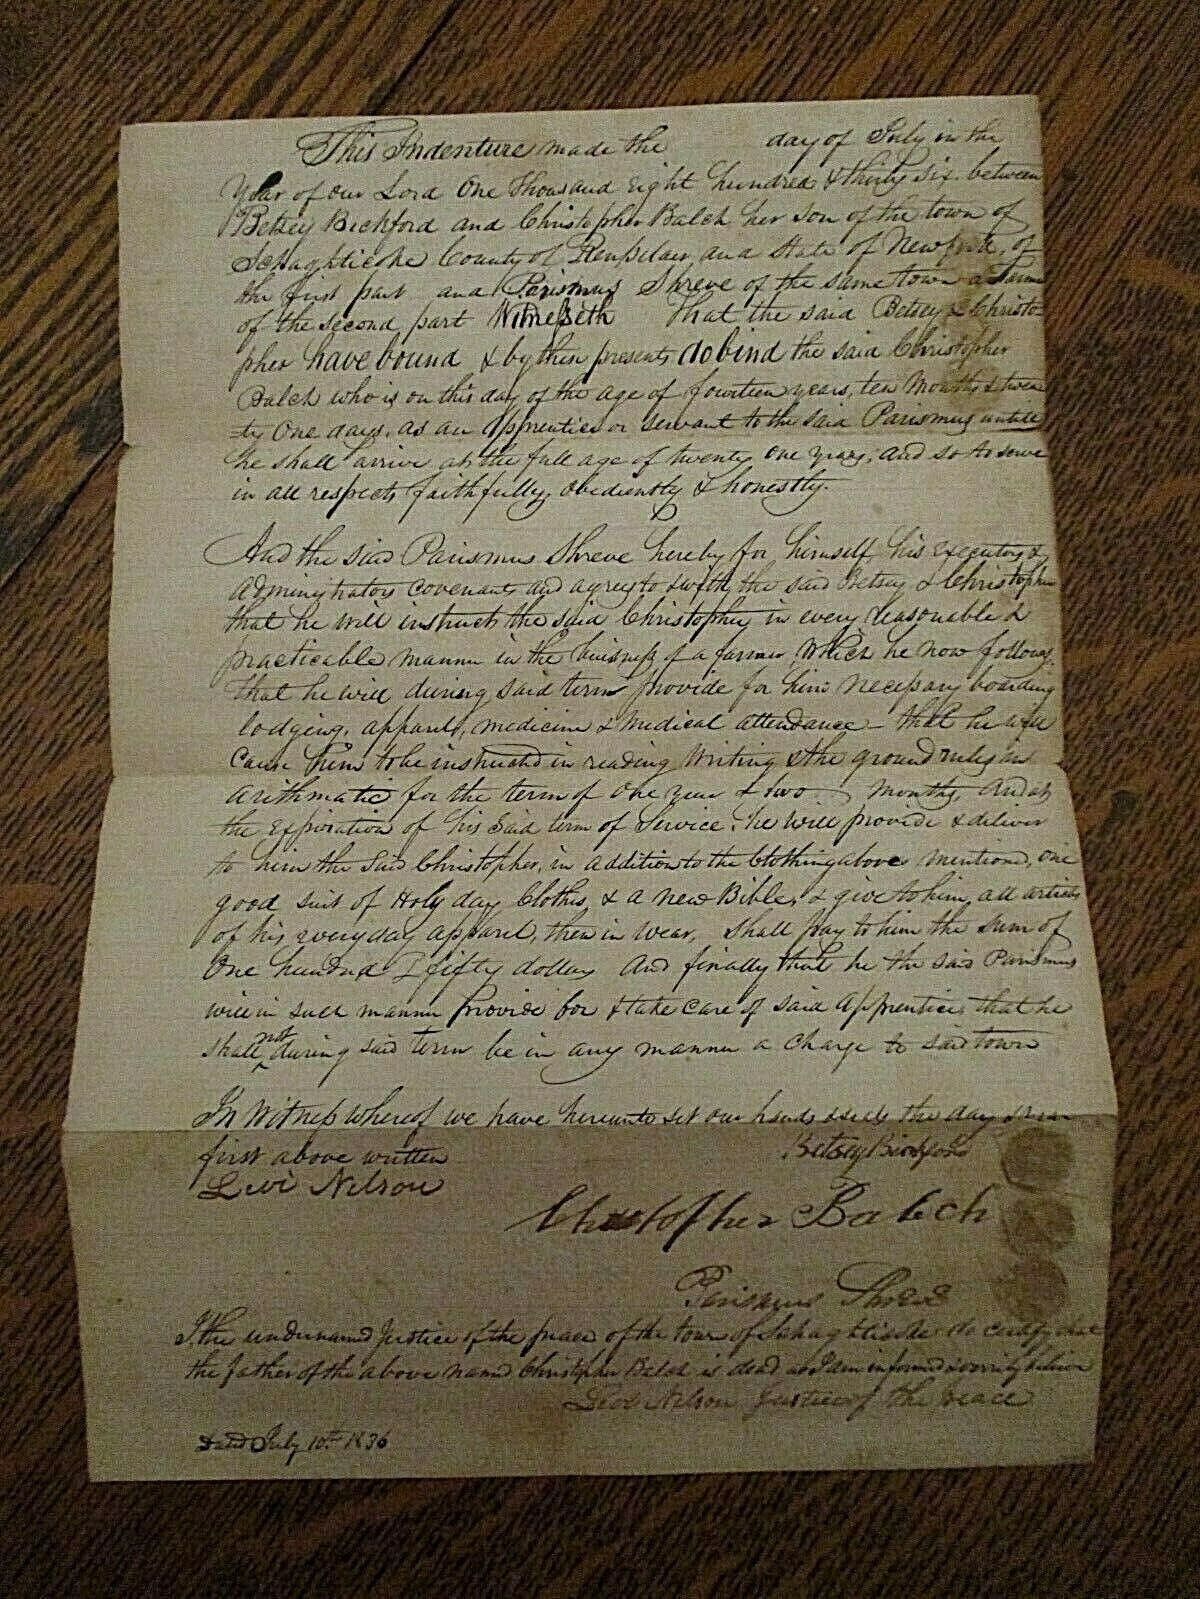 This Indenture made the day of July in the
Year of our Lord One Thousand Eight hundred & thirty six. between
Betsey Bickford and Christopher Balch her son of the town of
Schaghticoke County of Renselaer, and State of Newyork, of
the first part and Parismus Shreve of the same town a
of the second part Witnesseth That the said Betsey & Christo-
pher have bound & by these presents, do bind the said Christopher
Balch who is on this day of the age of fourteen years, ten Months & twen
ty One days, as an Apprentice or servant to the said Parismus untill
he shall arrive at the full age of twenty one years, and so to serve
in all respects faithfully, obediently & honestly.
And the said Parismus Shreve hereby for himself, his Executors &
Administrators covenants and agrees to & with, the said Betsey & Christopher
that he will instruct the said Christopher in every reasonable &
practicable manner in the buisness of a farmer, which he now follows,
that he will during said term provide for him necessary boarding
lodging, apparel, medicine & Medical attendance - that he will
cause him to be instructed in reading Writing & the ground rules in
arithmatic for the term of One year & two months, And at
the Expiration of his said term of Service, he will provide & deliver
to him the said Christopher, in addition to the Clothing above mentioned, one
good suit of Holy day Clothes, & a new Bible, & give to him, all articles
of his every day apparel, then in wear, Shall pay to him the Sum of
One hundred & fifty dollars And finally that he the said Parismus
will in such manner provide for & take care of said Apprentice, that he
shall not during said term be in any manner a charge to said town
In Witness whereof we have hereunto set our hands & seals the day & year
first above written
Betsey Bickford
Levi Nelson
Christopher Balch
Parismus Shreve
I, the undernamed Justice of the peace of the town of Schaghticoke do certify that
the father of the above named Christopher Balch is dead as I am informed & verrily believe
Levi Nelson Justice of the peace
Dated July 10th 1836